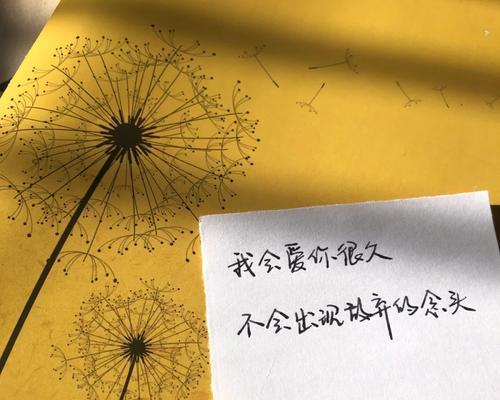 我会爱你很久
不会出现放弃的念头